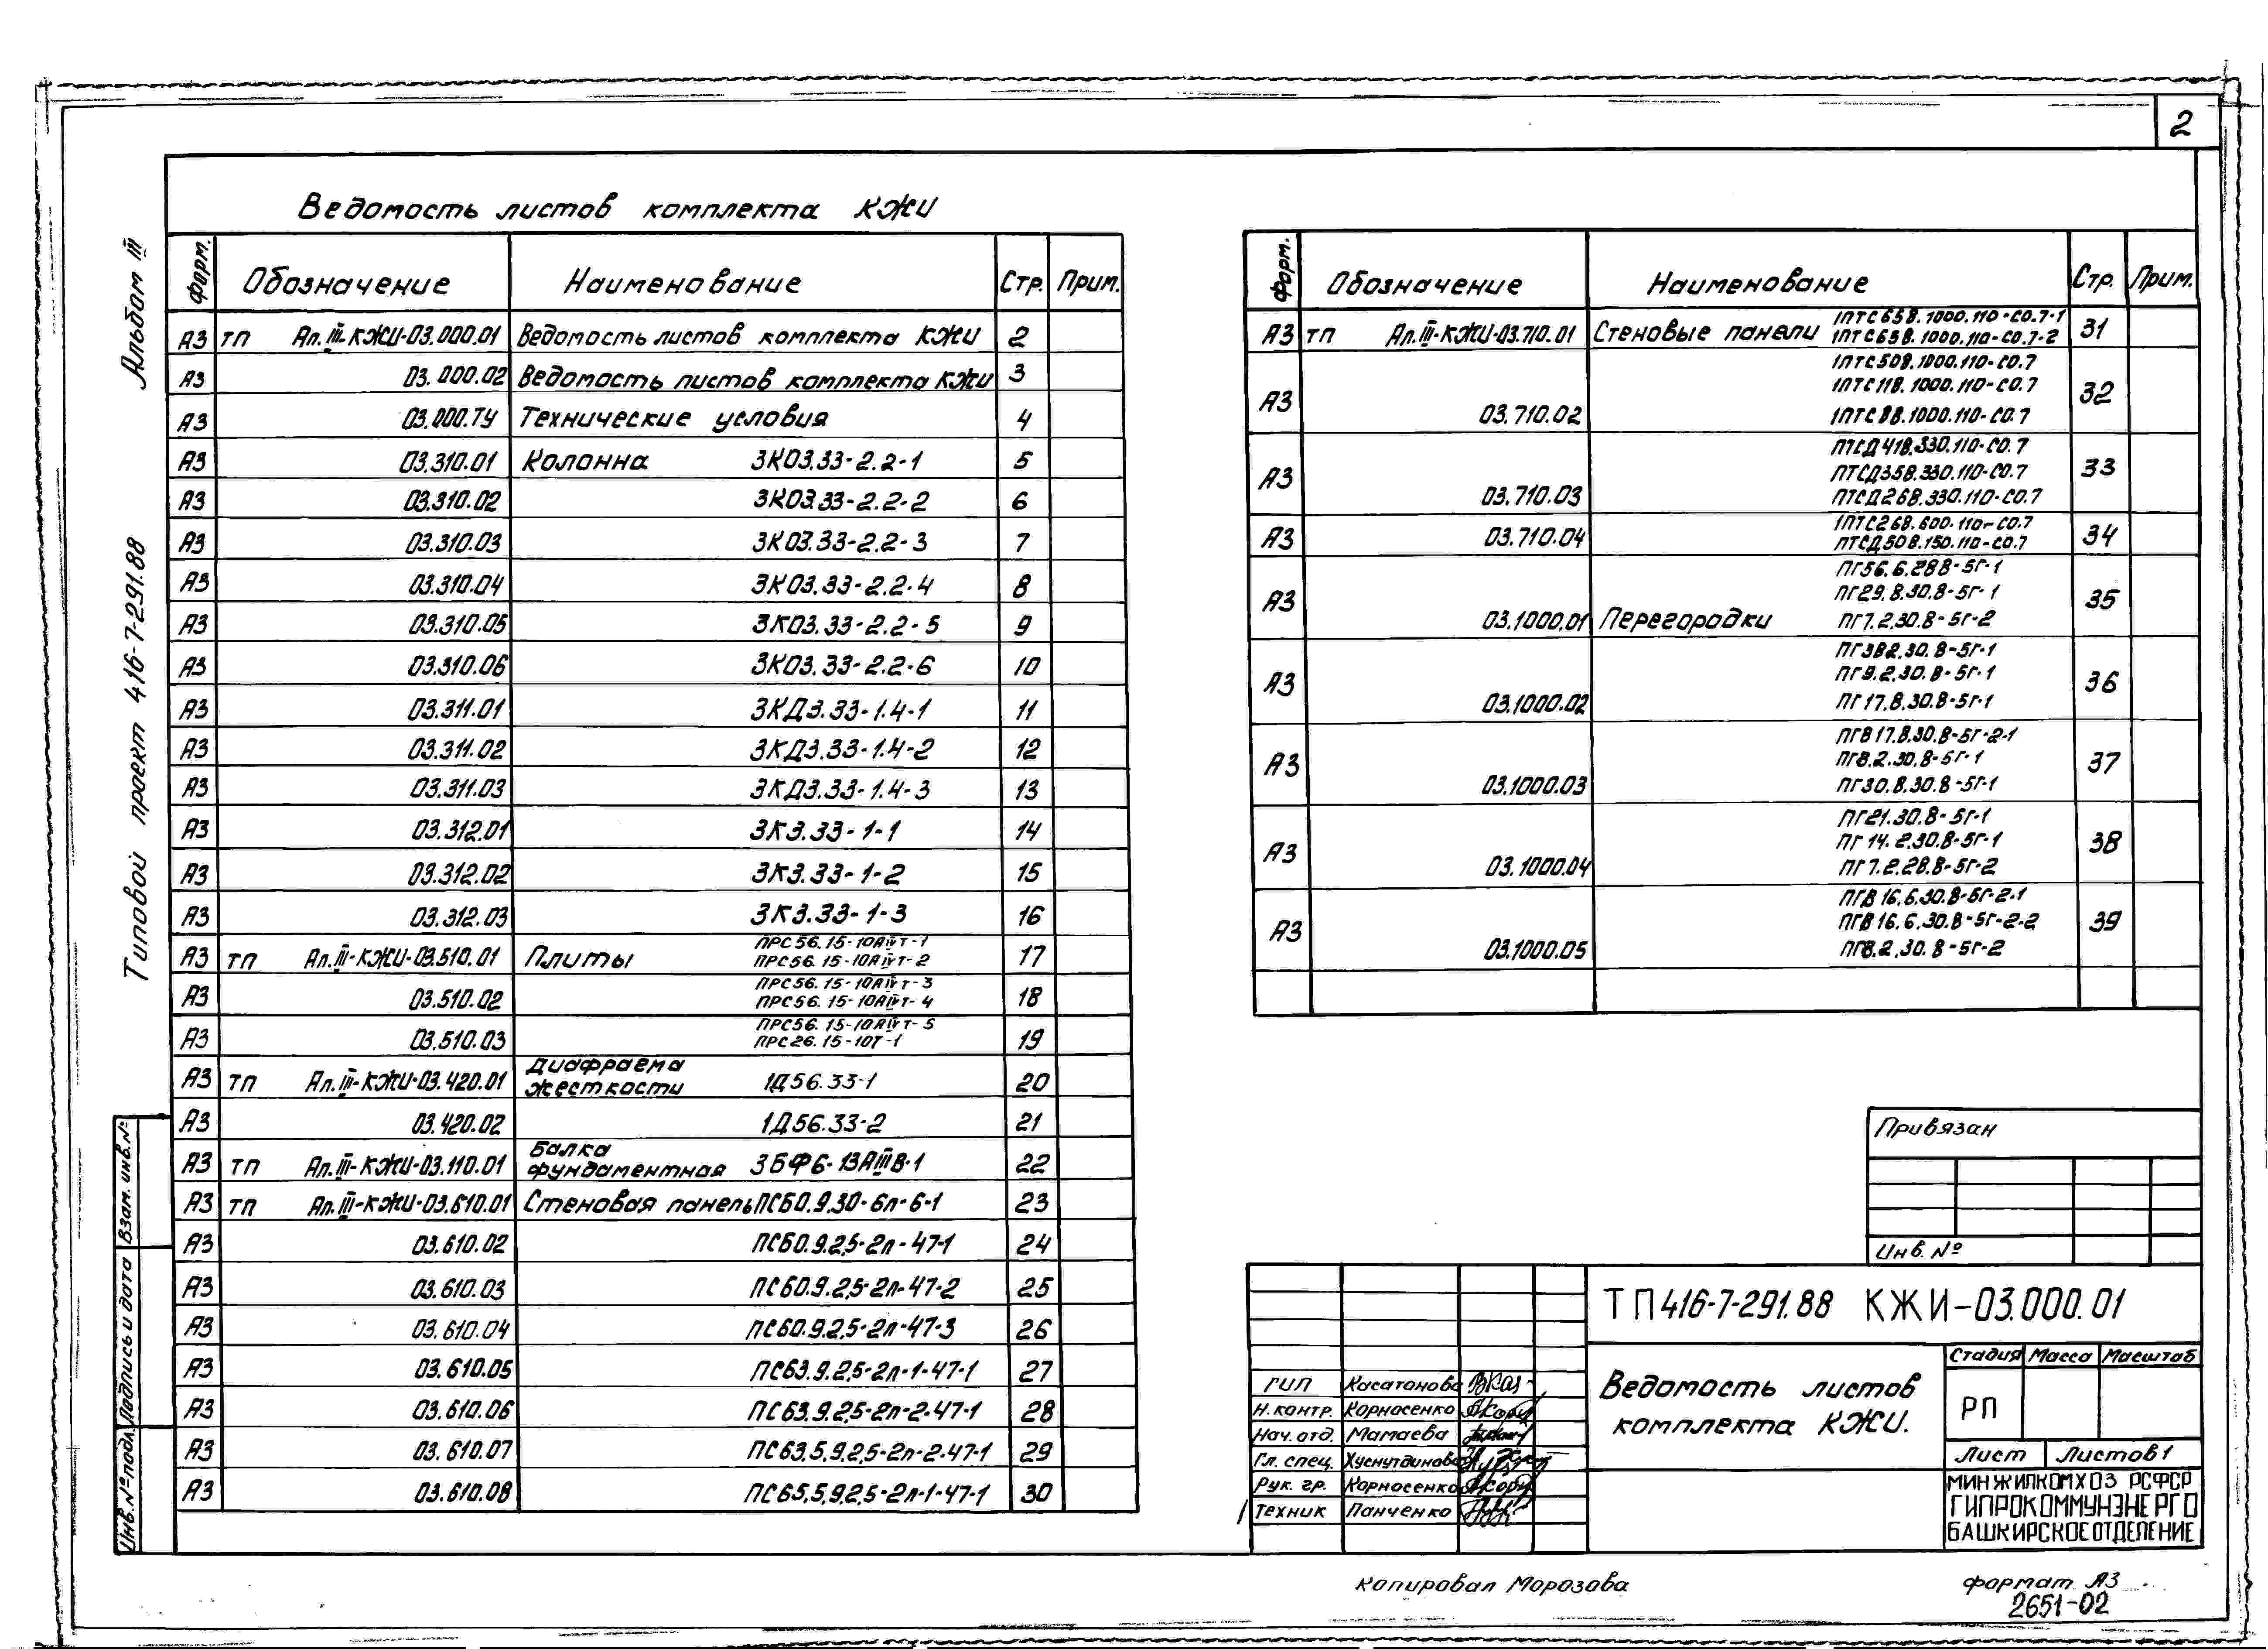 2
Альбом III
Типовой проект 416-7-291.88
Ведомость листов комплекта КЖИ
Форм. Обозначение Наименование Стр. Прим.
А3 ТП Ал.III-КЖИ-03.000.01 Ведомость листов комплекта КЖИ 2
А3 03.000.02 Ведомость листов комплекта КЖИ 3
А3 03.000.ТУ Технические условия 4
А3 03.310.01 Колонна 3КО3.33-2.2-1 5
А3 03.310.02 3КО3.33-2.2-2 6
А3 03.310.03 3КО3.33-2.2-3 7
А3 03.310.04 3КО3.33-2.2-4 8
А3 03.310.05 3КО3.33-2.2-5 9
А3 03.310.06 3КО3.33-2.2-6 10
А3 03.311.01 3КД3.33-1.4-1 11
А3 03.311.02 3КД3.33-1.4-2 12
А3 03.311.03 3КД3.33-1.4-3 13
А3 03.312.01 3К3.33-1-1 14
А3 03.312.02 3К3.33-1-2 15
А3 03.312.03 3К3.33-1-3 16
А3 ТП Ал.III-КЖИ-03.510.01 Плиты ПРС56.15-10АIVТ-1 17
ПРС56.15-10АIVТ-2
А3 03.510.02 ПРС56.15-10АIVТ-3 18
ПРС56.15-10АIVТ-4
А3 03.510.03 ПРС56.15-10АIVТ-5 19
ПРС26.15-10Т-1
А3 ТП Ал.III-КЖИ-03.420.01 Диафрагма
жесткости 1Д56.33-1 20
А3 03.420.02 1Д56.33-2 21
А3 ТП Ал.III-КЖИ-03.110.01 Балка
фундаментная 3БФ6-13АIIIВ-1 22
А3 ТП Ал.III-КЖИ-03.610.01 Стеновая панель ПС60.9.30-6л-6-1 23
А3 03.610.02 ПС60.9.2,5-2л-47-1 24
А3 03.610.03 ПС60.9.2,5-2л-47-2 25
А3 03.610.04 ПС60.9.2,5-2л-47-3 26
А3 03.610.05 ПС63.9.2,5-2л-1-47-1 27
А3 03.610.06 ПС63.9.2,5-2л-2-47-1 28
А3 03.610.07 ПС63,5.9.2,5-2л-2-47-1 29
А3 03.610.08 ПС65,5.9.2,5-2л-1-47-1 30
Форм. Обозначение Наименование Стр. Прим.
А3 ТП Ал.III-КЖИ-03.710.01 Стеновые панели 1ПТС658.1000.110-СО.7-1 31
1ПТС658.1000.110-СО.7-2
А3 03.710.02 1ПТС508.1000.110-СО.7 32
1ПТС118.1000.110-СО.7
1ПТС88.1000.110-СО.7
А3 03.710.03 ПТСД418.330.110-СО.7 33
ПТСД358.330.110-СО.7
ПТСД268.330.110-СО.7
А3 03.710.04 1ПТС268.600.110-СО.7 34
ПТСД508.150.110-СО.7
А3 03.1000.01 Перегородки ПГ56.6.28.8-5Г-1 35
ПГ29.8.30.8-5Г-1
ПГ7.2.30.8-5Г-2
А3 03.1000.02 ПГ38.2.30.8-5Г-1 36
ПГ9.2.30.8-5Г-1
ПГ17.8.30.8-5Г-1
А3 03.1000.03 ПГВ17.8.30.8-5Г-2-1 37
ПГ8.2.30.8-5Г-1
ПГ30.8.30.8-5Г-1
А3 03.1000.04 ПГ21.30.8-5Г-1 38
ПГ14.2.30.8-5Г-1
ПГ7.2.28.8-5Г-2
А3 03.1000.05 ПГВ16.6.30.8-5Г-2-1 39
ПГВ16.6.30.8-5Г-2-2
ПГ8.2.30.8-5Г-2
Взам. инв.№
Подпись и дата
Инв.№ подл.
Привязан
Инв.№
ТП416-7-291.88 КЖИ-03.000.01
Ведомость листов
комплекта КЖИ.
Стадия Масса Масштаб
РП
Лист Листов 1
МИНЖИЛКОМХОЗ РСФСР
ГИПРОКОММУНЭНЕРГО
БАШКИРСКОЕ ОТДЕЛЕНИЕ
ГИП Косатонова
Н.контр. Корнасенко
Нач.отд. Мамаева
Гл. спец. Хуснутдинова
Рук. гр. Корнасенко
Техник Панченко
Копировал Морозова
формат А3
2651-02